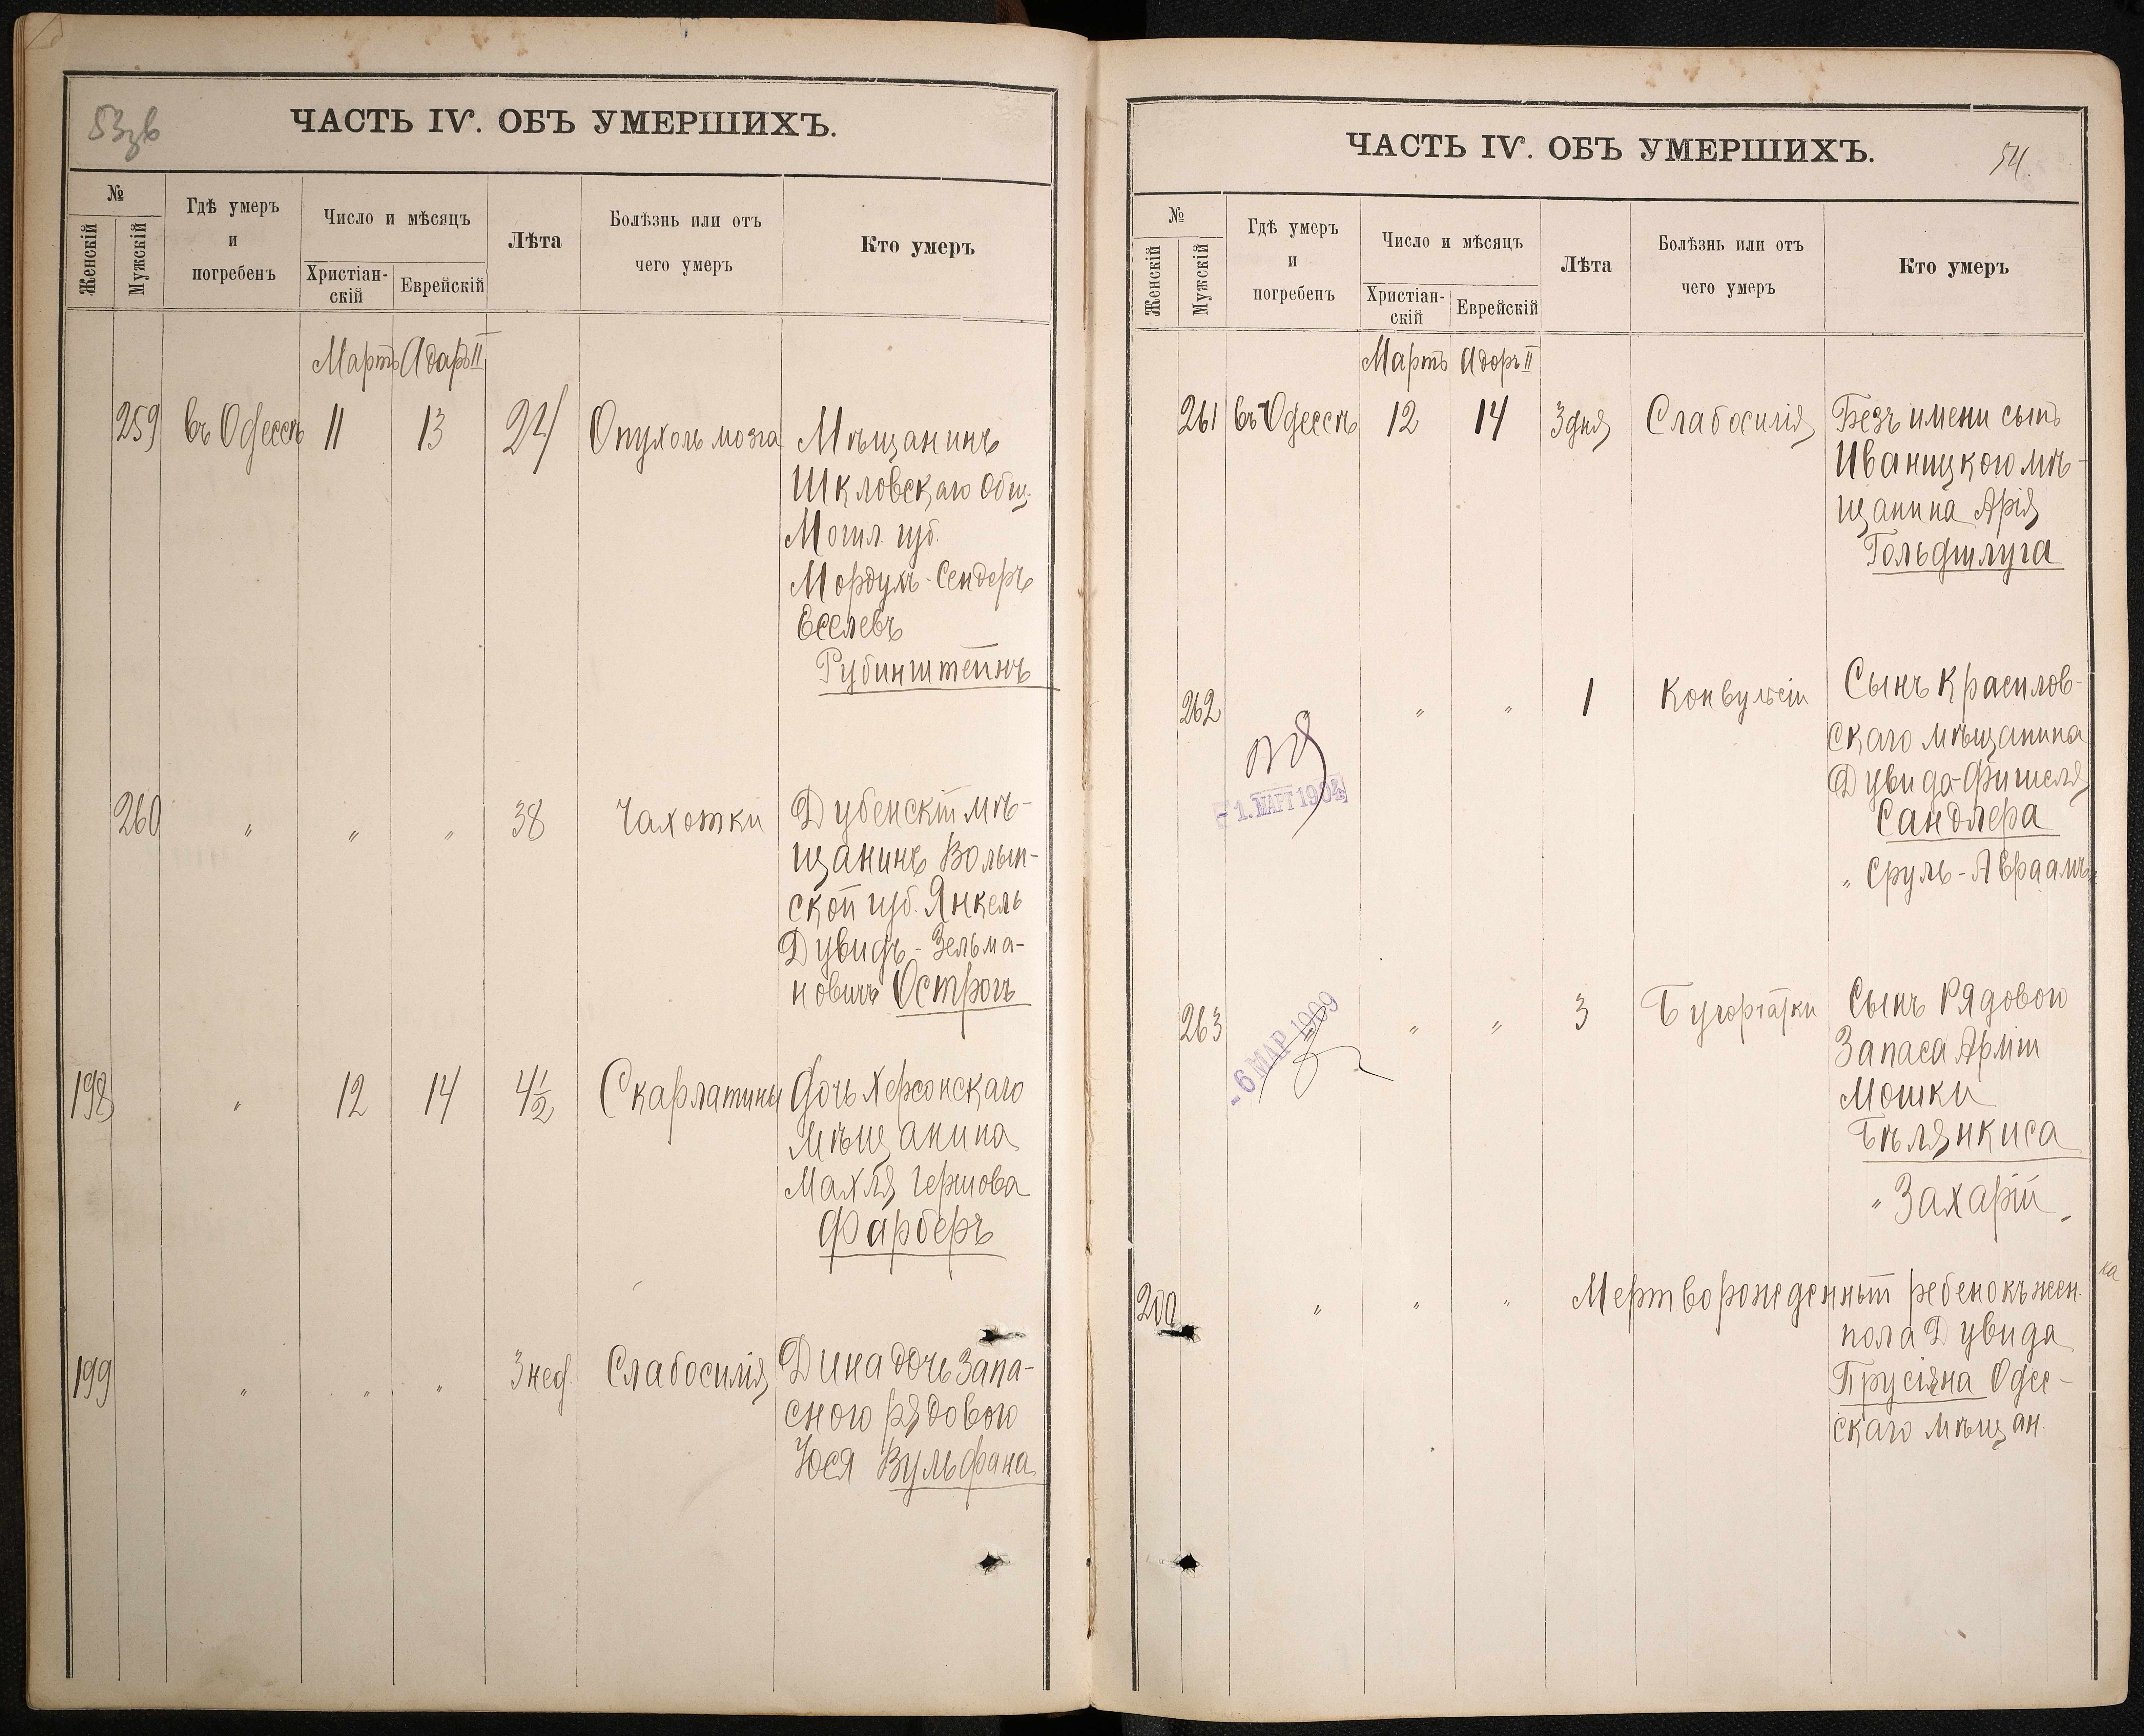 53об
ЧАСТЬ IV. ОБЪ УМЕРШИХЪ.
№
Женскій
Мужскій
Гдѣ умеръ
и
погребенъ
Число и мѣсяцъ
Христіан-
скій
Еврейскій
Лѣта
Болѣзнь или отъ
чего умеръ
Кто умеръ
Мартъ Адаръ II
259 въ Одессѣ 11 13 24 Опухоль мозга Мѣщанинъ
Шкловскаго Общ.
Могил. губ.
Мордухъ-Сендеръ
Еселевъ
Рубинштейнъ
260 " " " 38 Чахотки Дубенскій мѣ-
щанинъ Волын-
ской губ. Янкель
Дувидъ-Зельма-
новичъ Острогъ
198 " 12 14 4½ Скарлатины Дочь Херсонскаго
мѣщанина
Махля Гершова
Фарберъ
199 " " " 3 нед. Слабосилія Дина дочь запа-
сного рядового
Юся Вульфана
ЧАСТЬ IV. ОБЪ УМЕРШИХЪ.
54.
№
Женскій
Мужскій
Гдѣ умеръ
и
погребенъ
Число и мѣсяцъ
Христіан-
скій
Еврейскій
Лѣта
Болѣзнь или отъ
чего умеръ
Кто умеръ
Мартъ Адаръ II
261 въ Одессѣ 12 14 3 дня Слабосилія Безъ имени сынъ
Иваницкого мѣ-
щанина Арія
Гольдшлуга
262 " " 1 Конвульсіи Сынъ Красилов-
скаго мѣщанина
Дувида-Фишеля
Сандлера
" Сруль-Авраамъ "
-1. МАРТ 1904
263 " " 3 Бугорчатки Сынъ Рядового
Запаса Арміи
Мошки
Бѣлянкиса
" Захарій "
-6 МАР 1909
200 " " " Мертворожденный ребенокъ жен.
ка
пола Дувида
Прусіяна Одес-
скаго мѣщан.